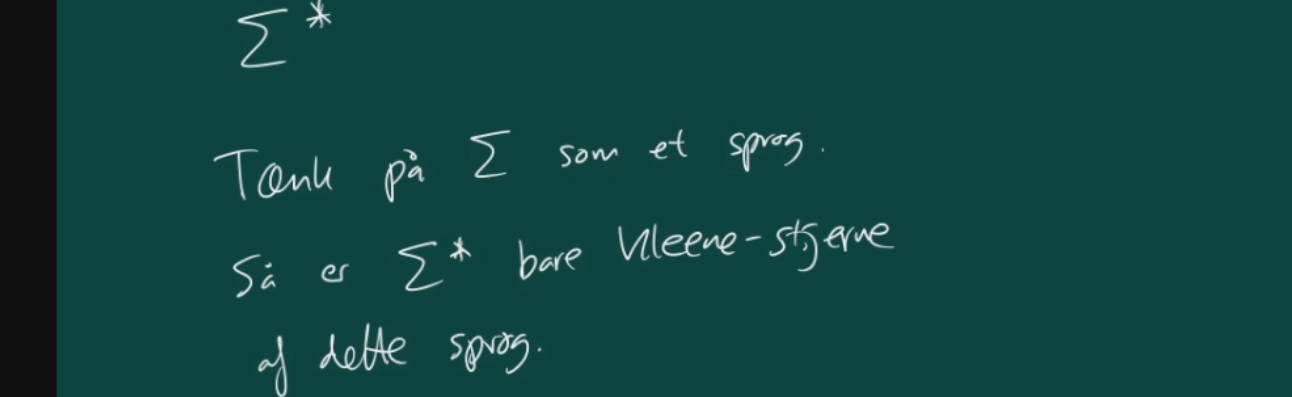 Σ*
Tænk på Σ som et sprog.
Så er Σ* bare Kleene-stjerne
af dette sprog.